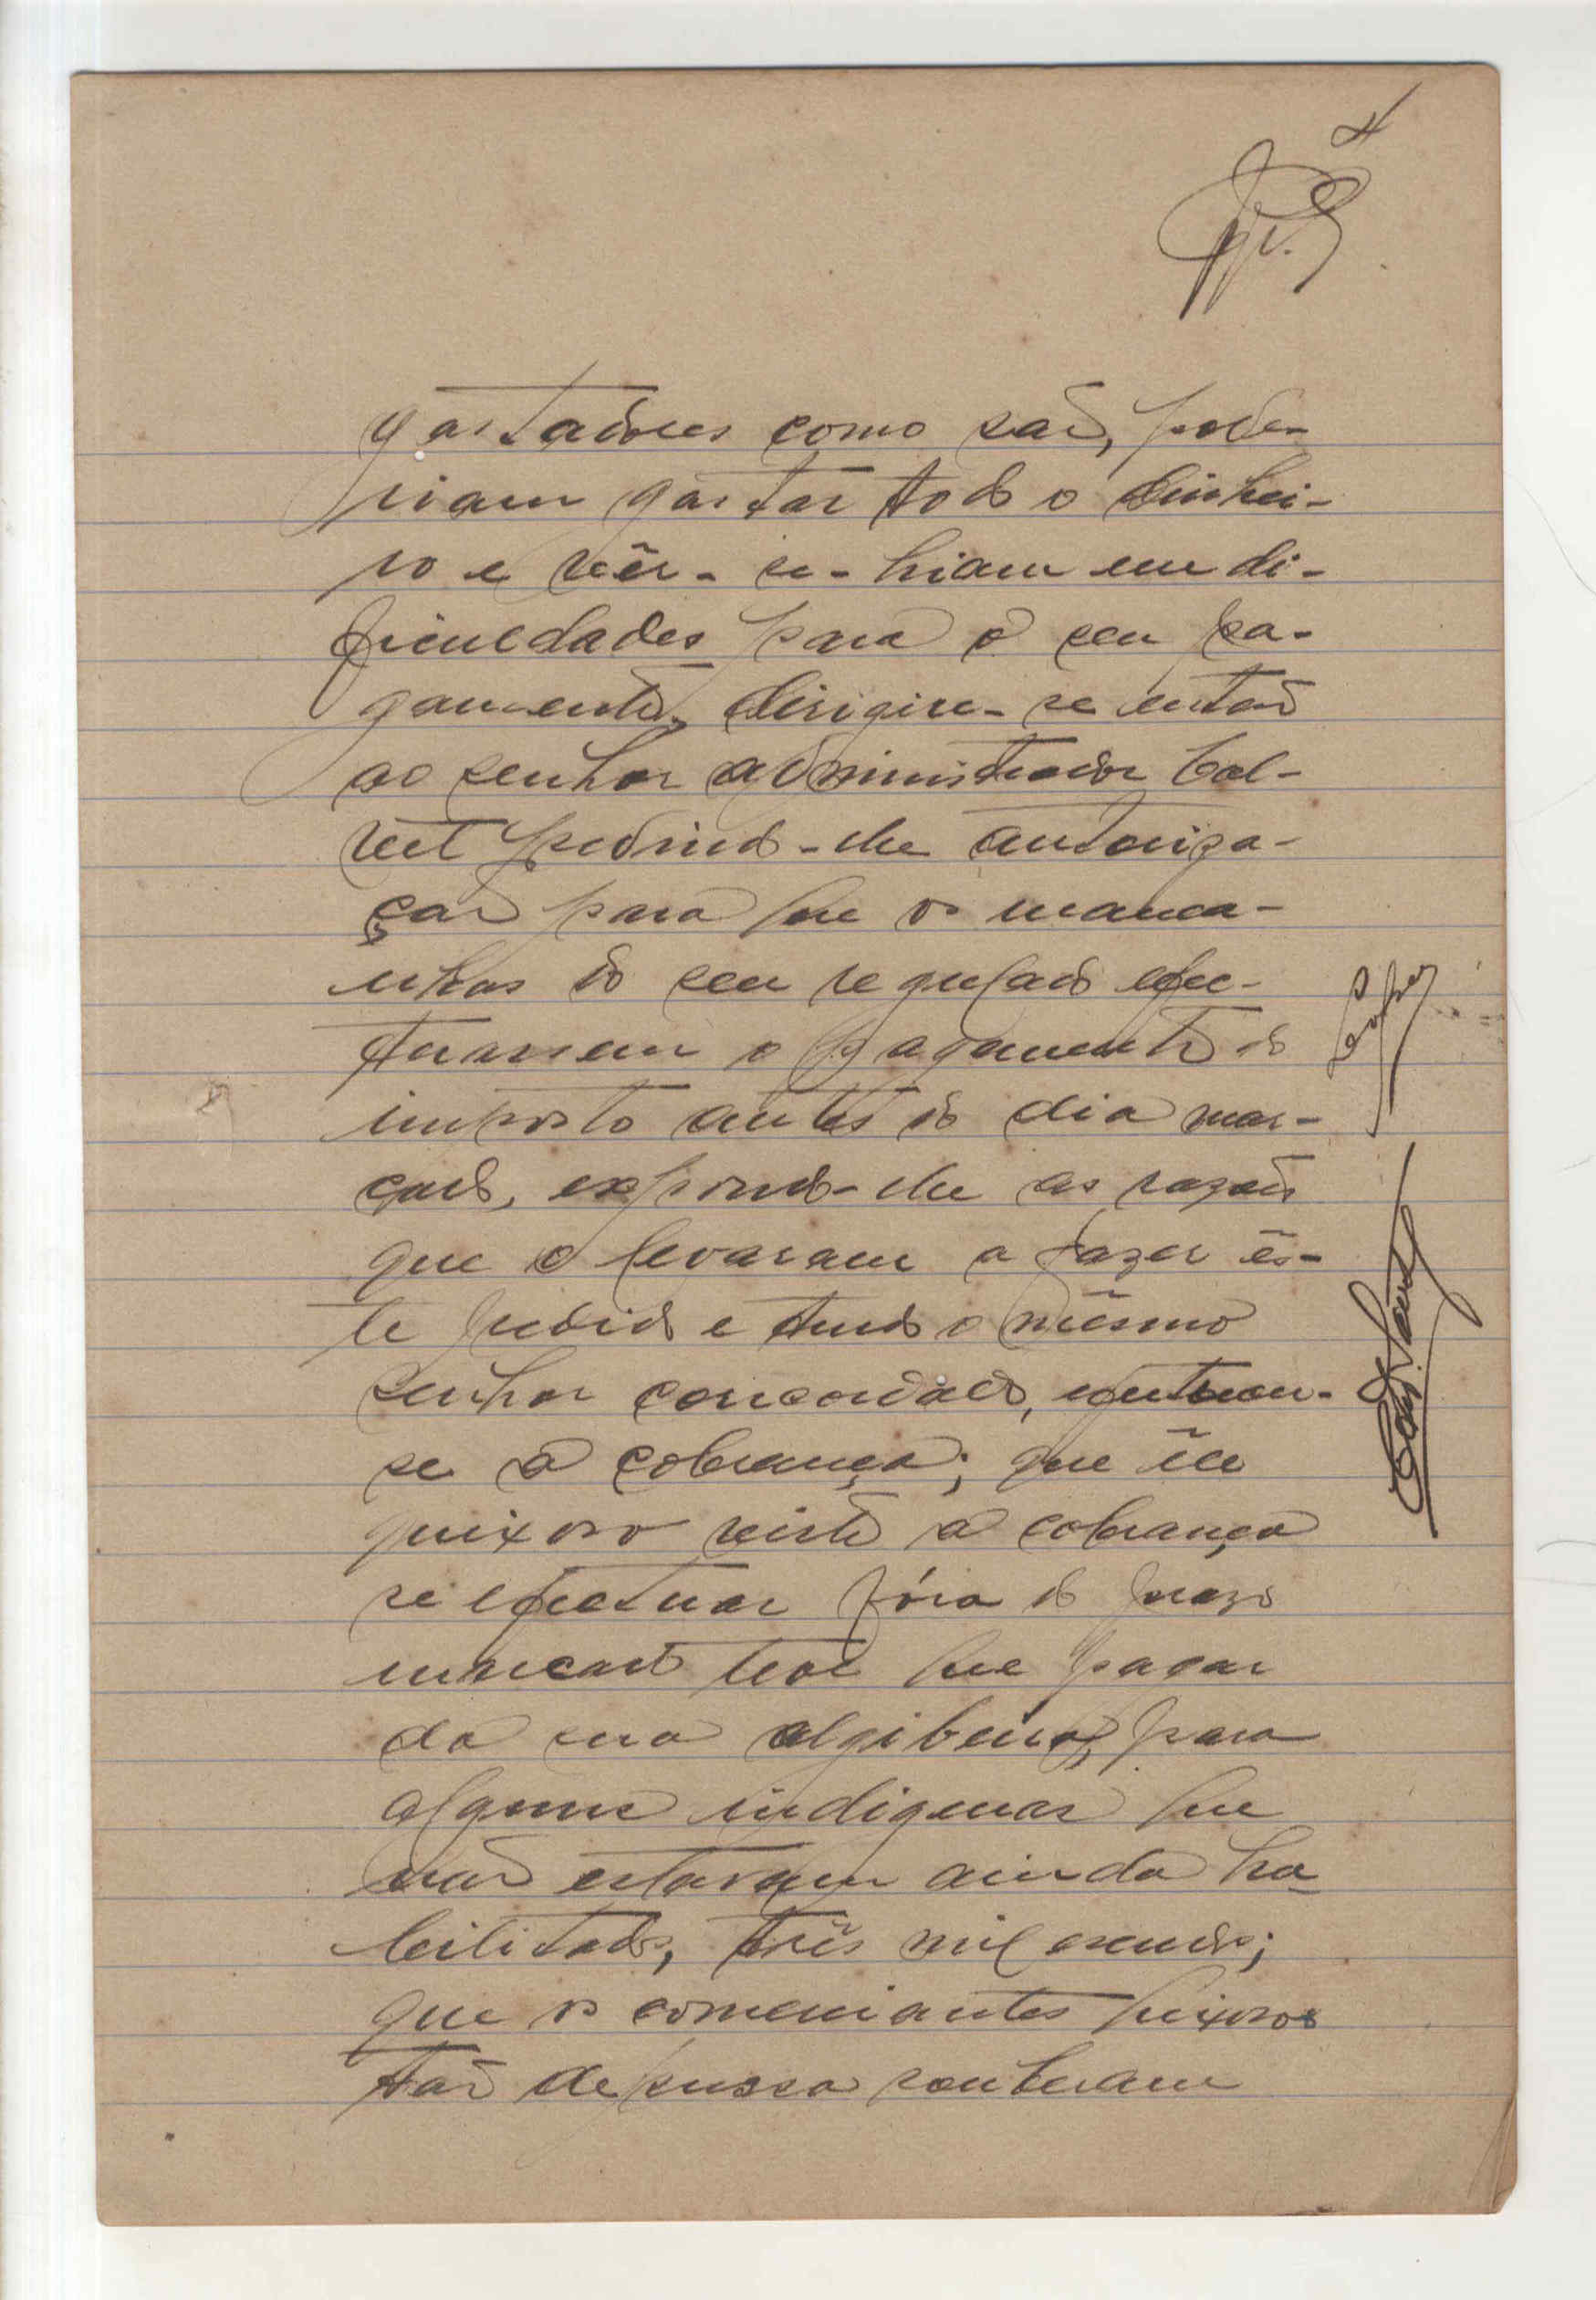 4
gastadores como são, pode-
riam gastar todo o dinhei-
ro e vêr-se-hiam em di-
ficuldades para o seu pa-
gamento, dirigiu-se então
ao senhor administrador Cal-
vet pedindo-lhe autoriza-
ção para que os manca-
nhas do seu regulado efec-
tuassem o pagamento do
imposto antes do dia mar-
cado, expondo-lhe as razões
que o levaram a fazer ês-
te pedido e tendo o mêsmo
senhor concordado, efectuou-
se a cobrança; que êle
queixoso visto a cobrança
se efectuar fóra do prazo
marcado teve que pagar
da sua algibeira, para
alguns indigenas que
não estavam ainda ha-
bilitados, três mil escudos;
que os comerciantes queixosos
tão depressa souberam